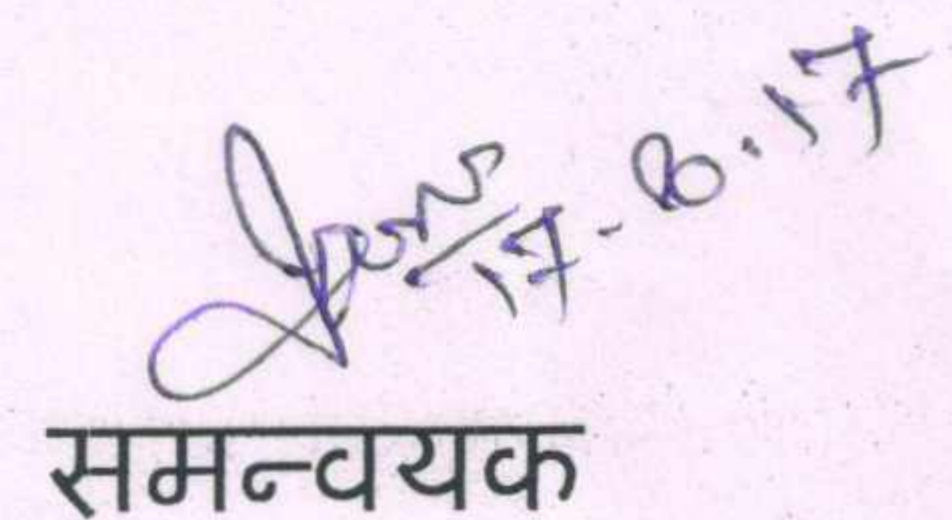 17-8.17
समन्वयक